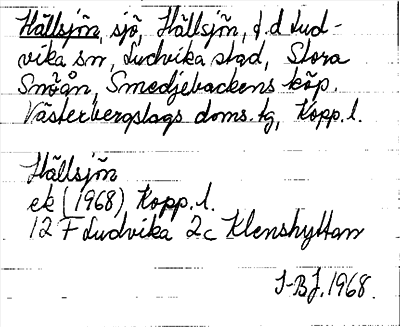 Hällsjön, sjö, Hällsjön, f.d Lud-
vika sn, Ludvika stad, Stora
Snöån, Smedjebackens köp.
Västerbergslags doms.tg, Kopp.l.
Hällsjön
ek (1968) Kopp.l.
12 F Ludvika 2c Klenshyttan
I-BJ, 1968.